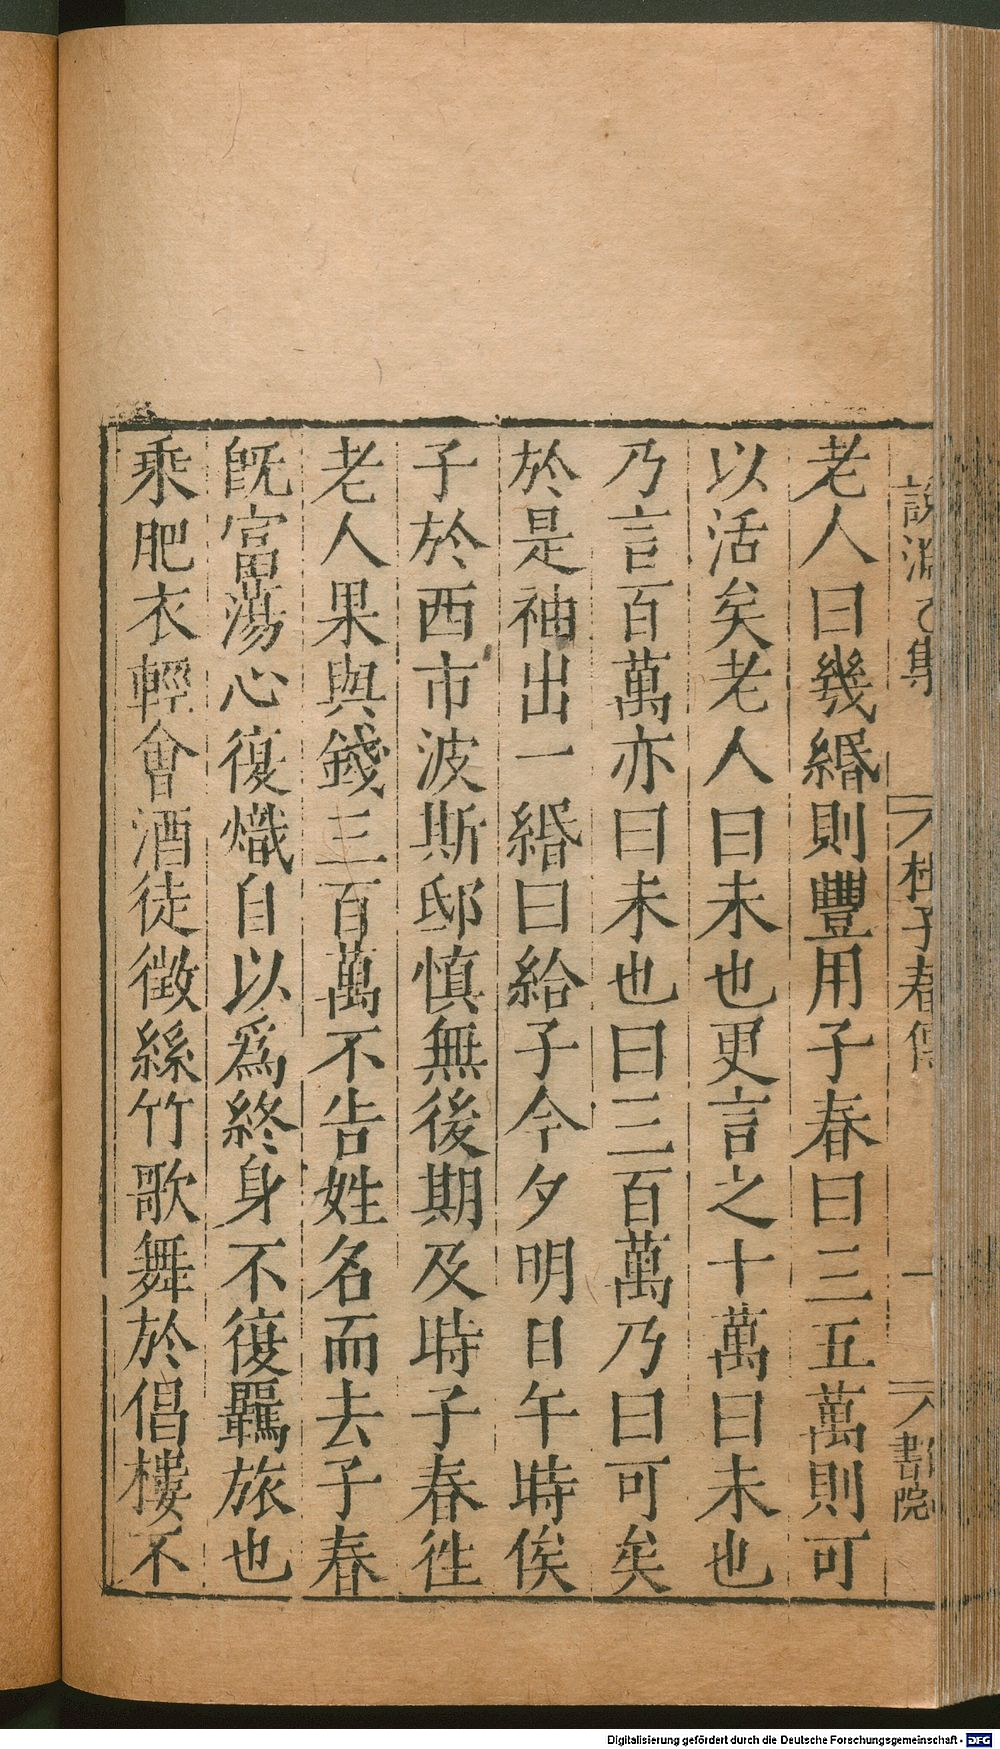 說淵乙集 杜子春傳 一 書院
老人曰幾緡則豐用子春曰三五萬則可
以活矣老人曰未也更言之十萬曰未也
乃言百萬亦曰未也曰三百萬乃曰可矣
於是袖出一緡曰給子今夕明日午時俟
子於西市波斯邸慎無後期及時子春徃
老人果與錢三百萬不告姓名而去子春
旣富蕩心復熾自以爲終身不復羈旅也
乘肥衣輕會酒徒徵絲竹歌舞於倡樓不
Digitalisierung gefördert durch die Deutsche Forschungsgemeinschaft - DFG